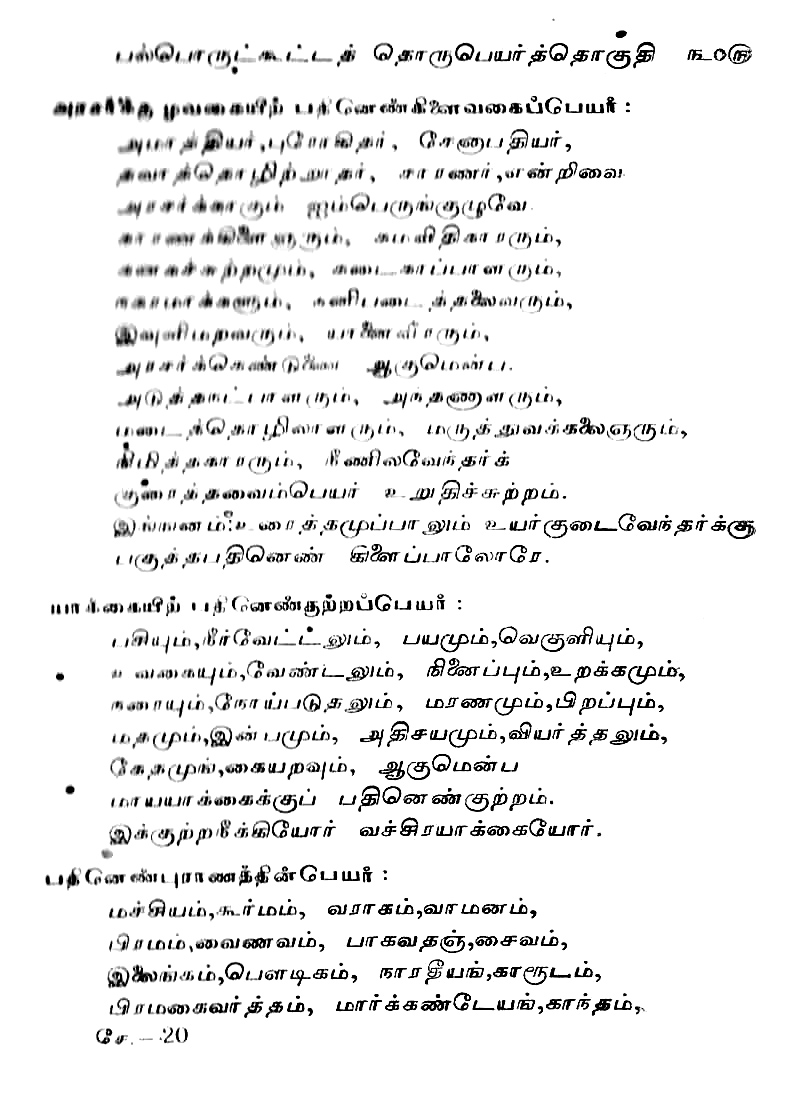 பல்பொருட்கூட்டத் தொருபெயர்த்தொகுதி ௩௦௫
அரசர்க்கு மூவகையிற் பதினெண்கிளைவகைப்பெயர் :
அமாத்தியர்,புரோகிதர், சேனாபதியர்,
தவாத்தொழிற்றூதர், சாரணர்,என்றிவை
அரசர்க்காகும் ஐம்பெருங்குழுவே
கரணக்கிளைஞரும், கருமவிதிகாரரும்,
கனகச்சுற்றமும், கடைகாப்பாளரும்,
நகரமாக்களும், நனிபடைத்தலைவரும்,
இவுளிமறவரும், யானைவீரரும்,
அரசர்க்கெண்டுணை ஆகுமென்ப.
அடுத்தநட்பாளரும், அந்தணாளரும்,
மடைத்தொழிலாளரும், மருத்துவக்கலைஞரும்,
நிமித்தகாரரும், நீணிலவேந்தர்க்
குரைத்தவைம்பெயர் உறுதிச்சுற்றம்.
இங்ஙனம் உரைத்தமுப்பாலும் உயர்குடைவேந்தர்க்கு
பகுத்தபதினெண் கிளைப்பாலோரே.
யாக்கையிற் பதினெண்குற்றப்பெயர் :
பசியும்,நீர்வேட்டலும், பயமும்,வெகுளியும்,
உவகையும்,வேண்டலும், நினைப்பும்,உறக்கமும்,
நரையும்,நோய்படுதலும், மரணமும்,பிறப்பும்,
மதமும்,இன்பமும், அதிசயமும்,வியர்த்தலும்,
கேதமுங்,கையறவும், ஆகுமென்ப
மாயயாக்கைக்குப் பதினெண்குற்றம்.
இக்குற்றநீக்கியோர் வச்சிரயாக்கையோர்.
பதினெண்புராணத்தின்பெயர் :
மச்சியம்,கூர்மம், வராகம்,வாமனம்,
பிரமம்,வைணவம், பாகவதஞ்,சைவம்,
இலைங்கம்,பௌடிகம், நாரதீயங்,காரூடம்,
பிரமகைவர்த்தம், மார்க்கண்டேயங்,காந்தம்,
சே.—20